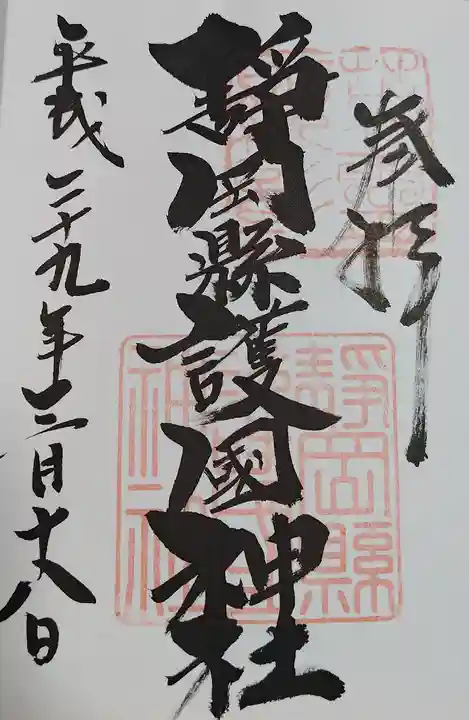 奉拝
靜岡縣護國神社
平成二十九年三月十八日
靜岡縣
神社